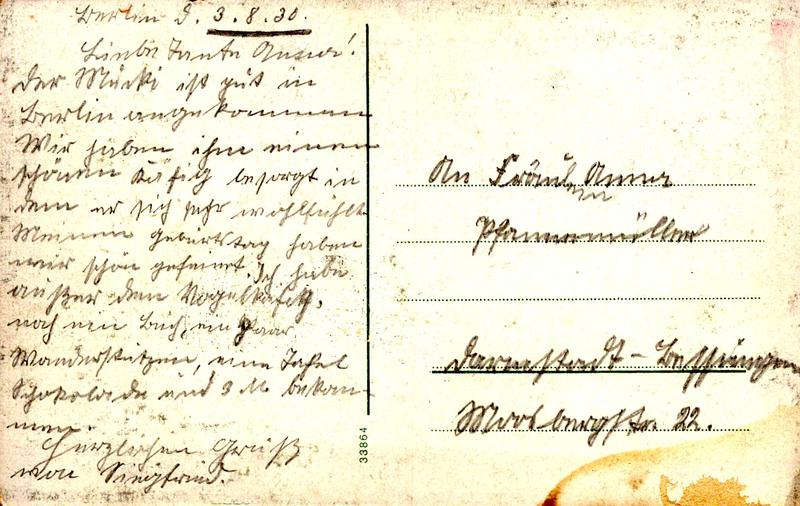 Berlin d. 3.8.30.
Liebe Tante Anna!
Der Mucki ist gut in
Berlin angekommen
Wir haben ihm einen
schönen Käfig besorgt in
dem er sich sehr wohlfühlt
Meinen Geburtstag haben
wir schön gefeiert. Ich habe
außer dem Vogelkäfig,
noch ein Buch, ein Paar
Wanderstutzen, eine Tafel
Schokolade und 3 M. bekom-
men.
Herzlichen Gruß
von Siegfried.
An Fräulein Anna
Pfannenmüller
Darmstadt - Bessungen
Moosbergstr. 22.
33864